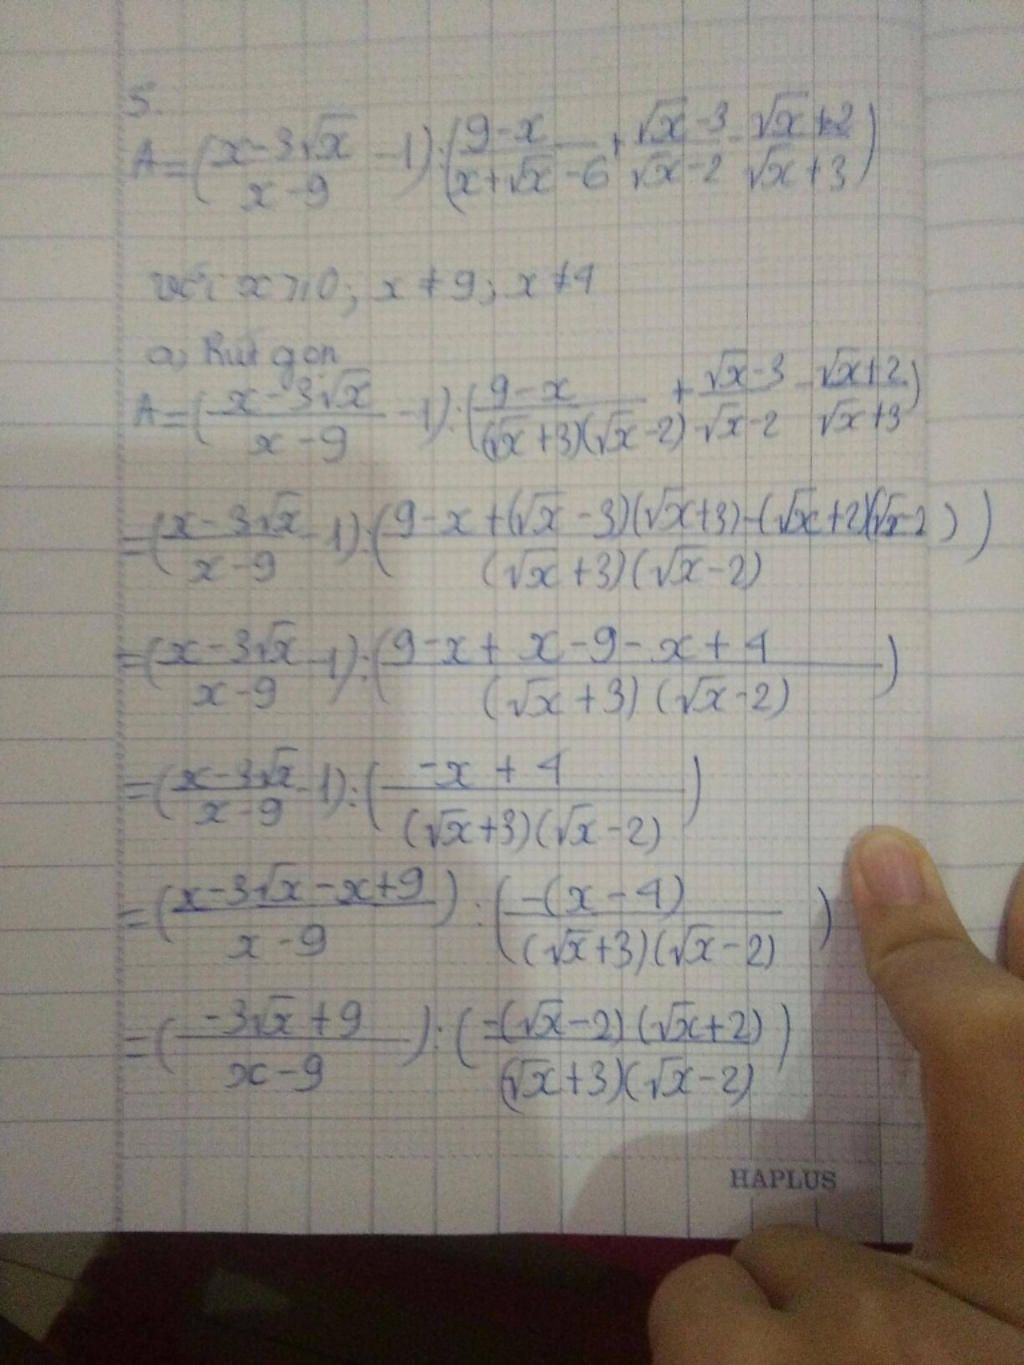 5.
A = ( (x - 3√x)/(x - 9) - 1 ) : ( (9 - x)/(x + √x - 6) + (√x - 3)/(√x - 2) - (√x + 2)/(√x + 3) )
với x ⩾ 0 ; x ≠ 9 ; x ≠ 4
a, Rút gọn
A = ( (x - 3√x)/(x - 9) - 1 ) : ( (9 - x)/((√x + 3)(√x - 2)) + (√x - 3)/(√x - 2) - (√x + 2)/(√x + 3) )
= ( (x - 3√x)/(x - 9) - 1 ) : ( (9 - x + (√x - 3)(√x + 3) - (√x + 2)(√x - 2))/((√x + 3)(√x - 2)) )
= ( (x - 3√x)/(x - 9) - 1 ) : ( (9 - x + x - 9 - x + 4)/((√x + 3)(√x - 2)) )
= ( (x - 3√x)/(x - 9) - 1 ) : ( (-x + 4)/((√x + 3)(√x - 2)) )
= ( (x - 3√x - x + 9)/(x - 9) ) : ( (-(x - 4))/((√x + 3)(√x - 2)) )
= ( (-3√x + 9)/(x - 9) ) : ( (-(√x - 2)(√x + 2))/((√x + 3)(√x - 2)) )
HAPLUS